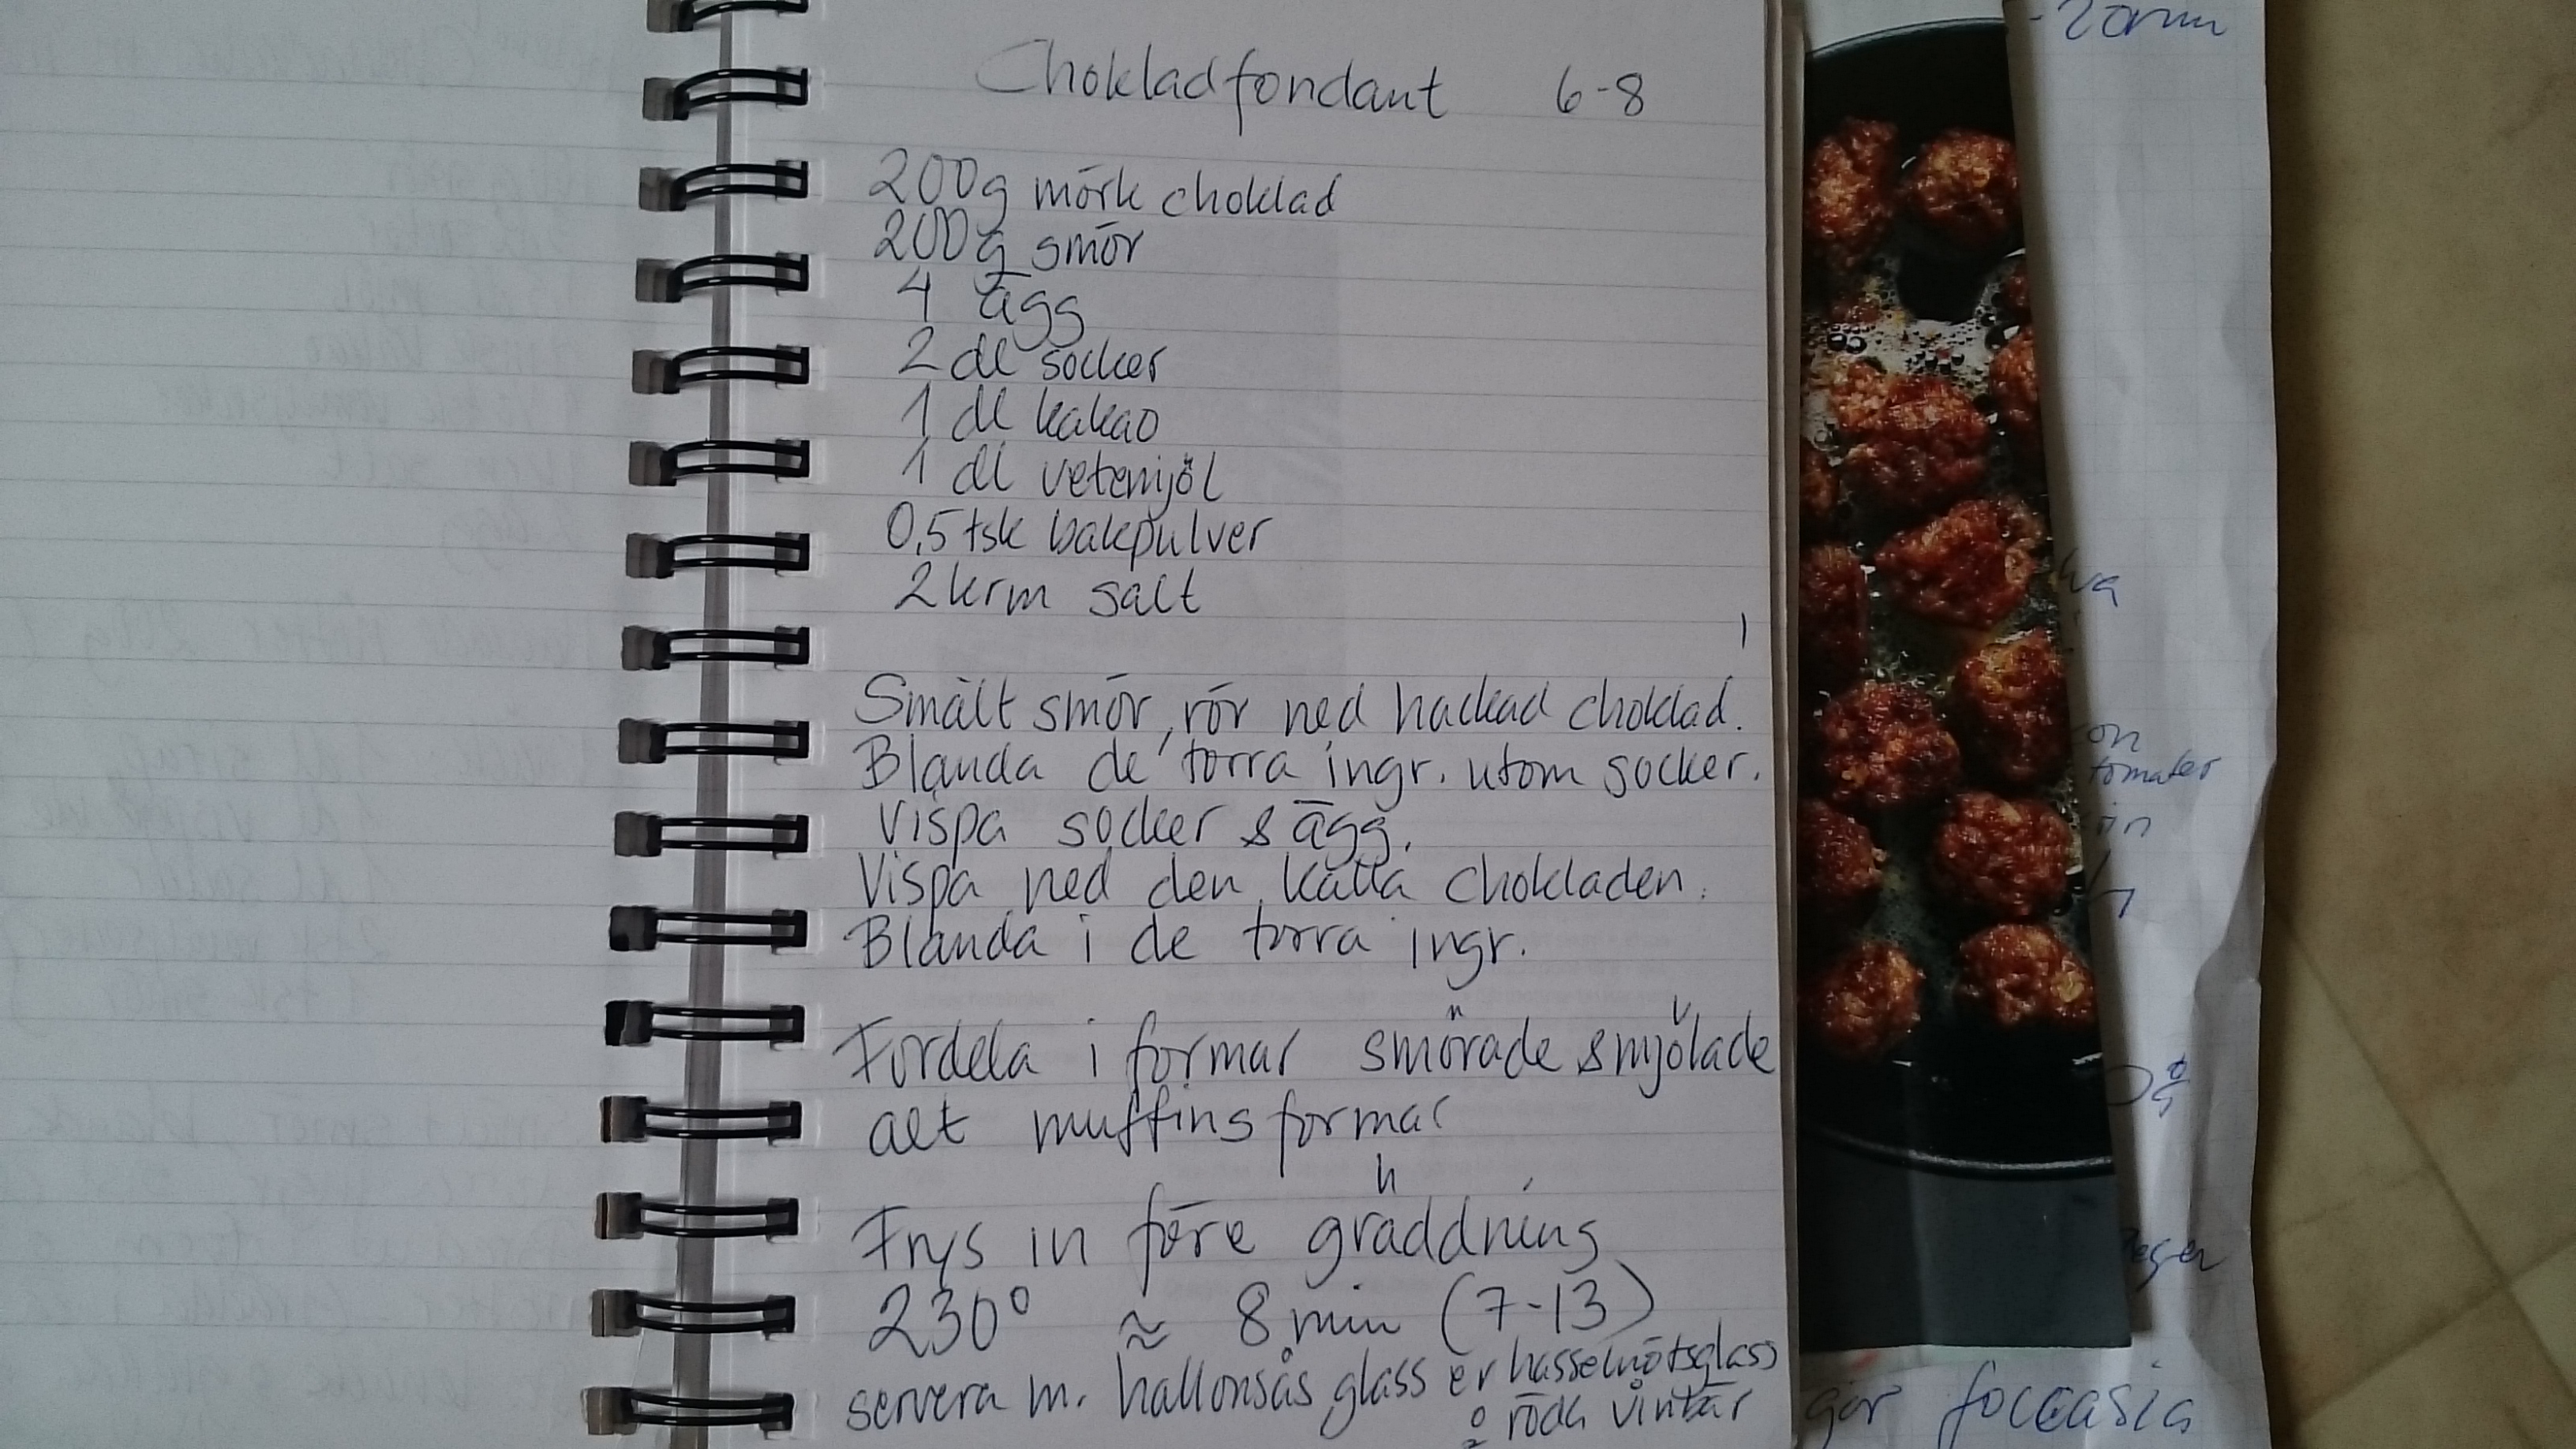 Chokladfondant 6-8
200g mörk choklad
200g smör
4 ägg
2 dl socker
1 dl kakao
1 dl vetemjöl
0,5 tsk bakpulver
2 krm salt
Smält smör, rör ned hackad choklad.
Blanda de torra ingr. utom socker.
Vispa socker & ägg.
Vispa ned den kalla chokladen.
Blanda i de torra ingr.
Fördela i formar smörade & mjölade
alt muffinsformar
Frys in före gräddning
230° ≈ 8 min (7-13)
servera m. hallonsås glass er hasselnötsglass
o röda vinbär
tomater
gör foccasia